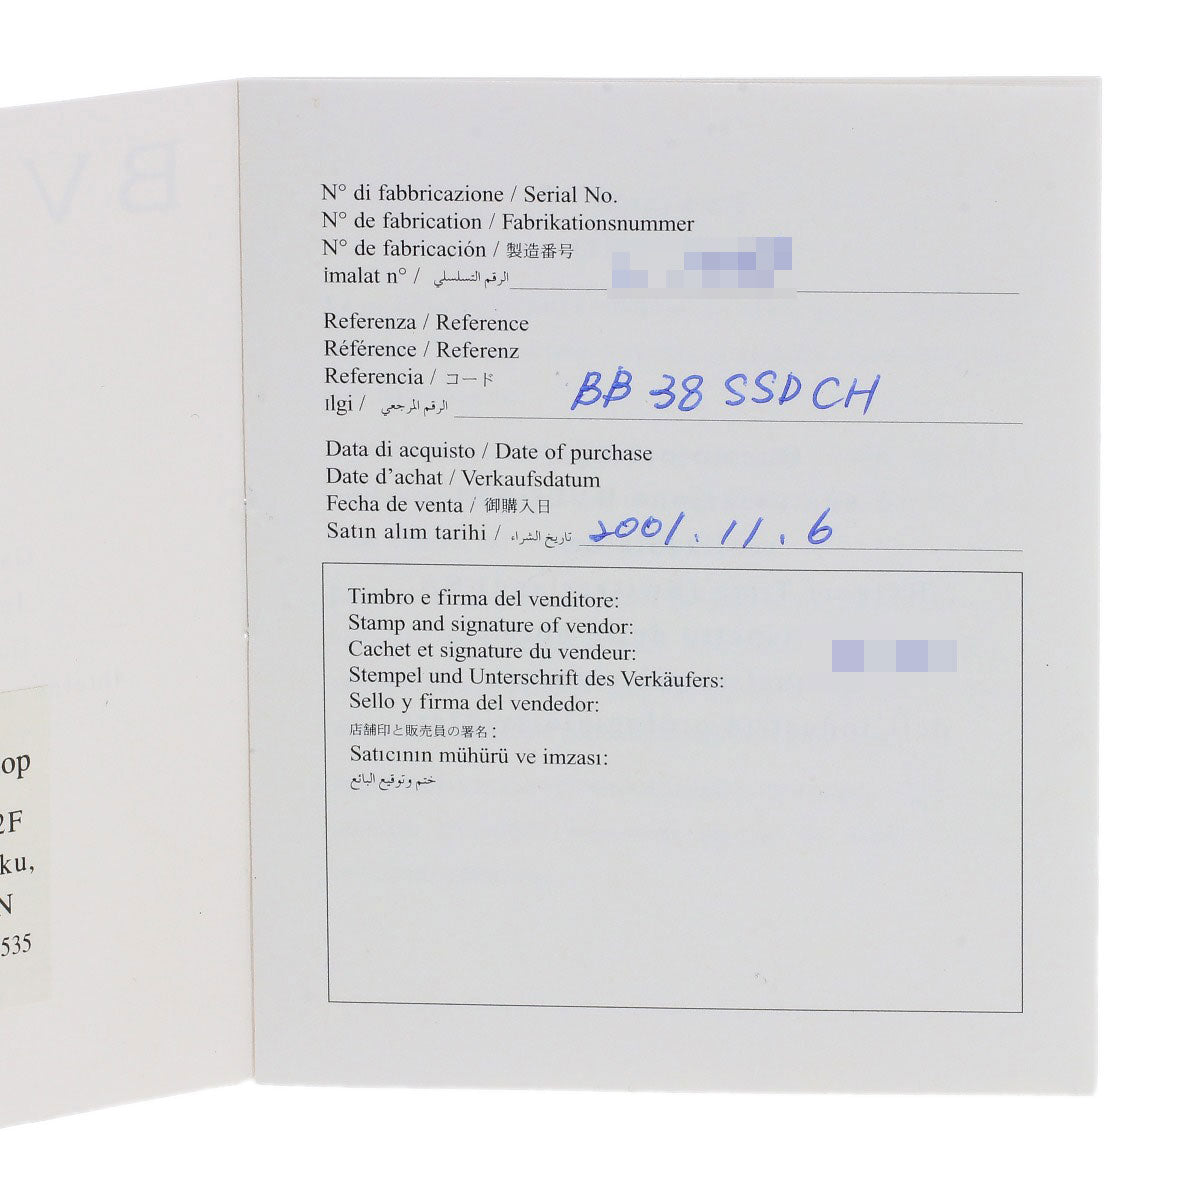 B V
op
2F
ku,
N
535
N° di fabbricazione / Serial No.
N° de fabrication / Fabrikationsnummer
N° de fabricación / 製造番号
imalat n° / الرقم التسلسلي
Referenza / Reference
Référence / Referenz
Referencia / コード
ılgi / الرقم المرجعي BB 38 SSD CH
Data di acquisto / Date of purchase
Date d'achat / Verkaufsdatum
Fecha de venta / 御購入日
Satın alım tarihi / تاريخ الشراء 2001. 11. 6
Timbro e firma del venditore:
Stamp and signature of vendor:
Cachet et signature du vendeur:
Stempel und Unterschrift des Verkäufers:
Sello y firma del vendedor:
店舗印と販売員の署名:
Satıcının mühürü ve imzası:
ختم وتوقيع البائع